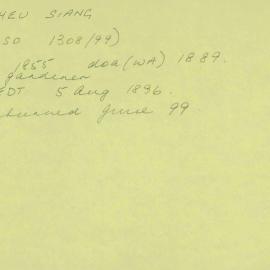 HEU SIANG
SO 1308/99)
1855 doa (WA) 1889.
gardener
EDT 5 Aug 1896.
returned June 99.